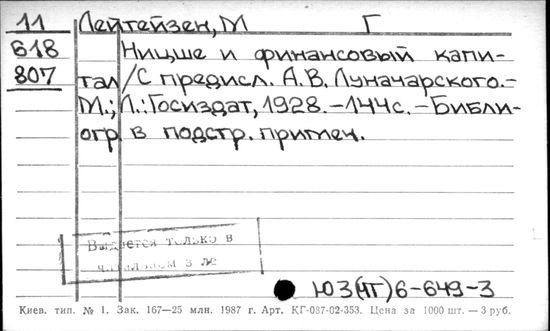 11 Лейтейзен, М Г
618 Ницше и финансовый капи-
807 тал /С предисл. А.В. Луначарского.-
М.; Л.: Госиздат, 1928.-144с.-Библи-
огр в подстр. примеч.
Выдается только в
Ю3(4Г)6-649-3
Киев. тип. № 1. Зак. 167—25 млн. 1987 г. Арт. КГ-087-02-353. Цена за 1000 шт. — 3 руб.